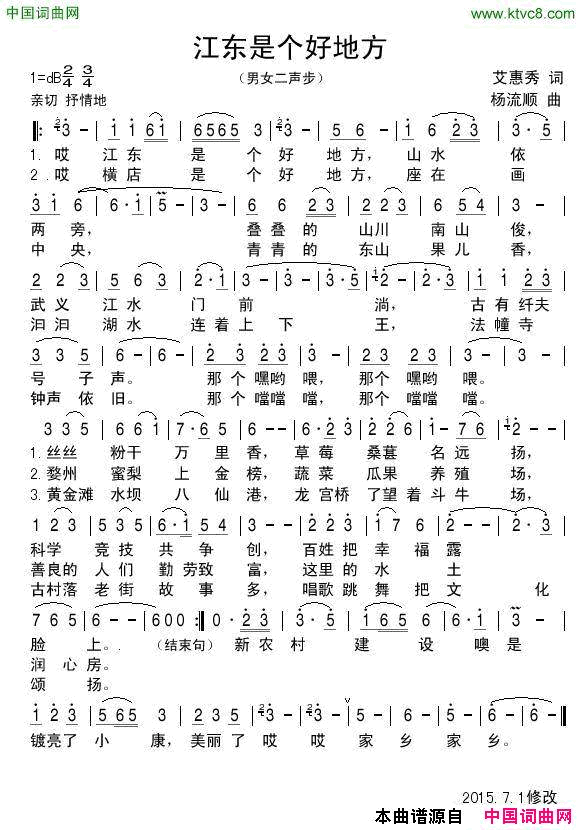 中国词曲网
www.ktvc8.com
江东是个好地方
1=dB 2/4 3/4
（男女二声步）
艾惠秀 词
亲切 抒情地
杨流顺 曲
1. 哎 江东 是 个 好 地方, 山水 依
2. 哎 横店 是 个 好 地方, 座在 画
两 旁, 叠叠 的 山川 南山 俊,
中 央, 青青 的 东山 果儿 香,
武义 江水 门 前 淌, 古有 纤夫
汩汩 湖水 连着 上 下 王, 法幢寺
号 子 声。 那个 嘿哟 喂, 那个 嘿哟 喂。
钟声 依 旧。 那个 噹噹 噹, 那个 噹噹 噹,
1. 丝丝 粉干 万 里 香, 草莓 桑葚 名 远 扬,
2. 婺州 蜜梨 上 金 榜, 蔬菜 瓜果 养 殖 场,
3. 黄金滩 水坝 八 仙 港, 龙宫桥 了望 着 斗 牛 场,
科学 竞 技 共 争 创, 百姓 把 幸 福 露
善良的 人 们 勤 劳致 富, 这里 的 水 土
古村落 老 街 故 事 多, 唱歌 跳 舞 把 文 化
脸 上。. (结束句) 新 农 村 建 设 噢 是
润 心 房。
颂 扬。
镀亮了 小 康, 美丽 了 哎 哎 家 乡 家 乡。
2015.7.1修改
本曲谱源自 中国词曲网